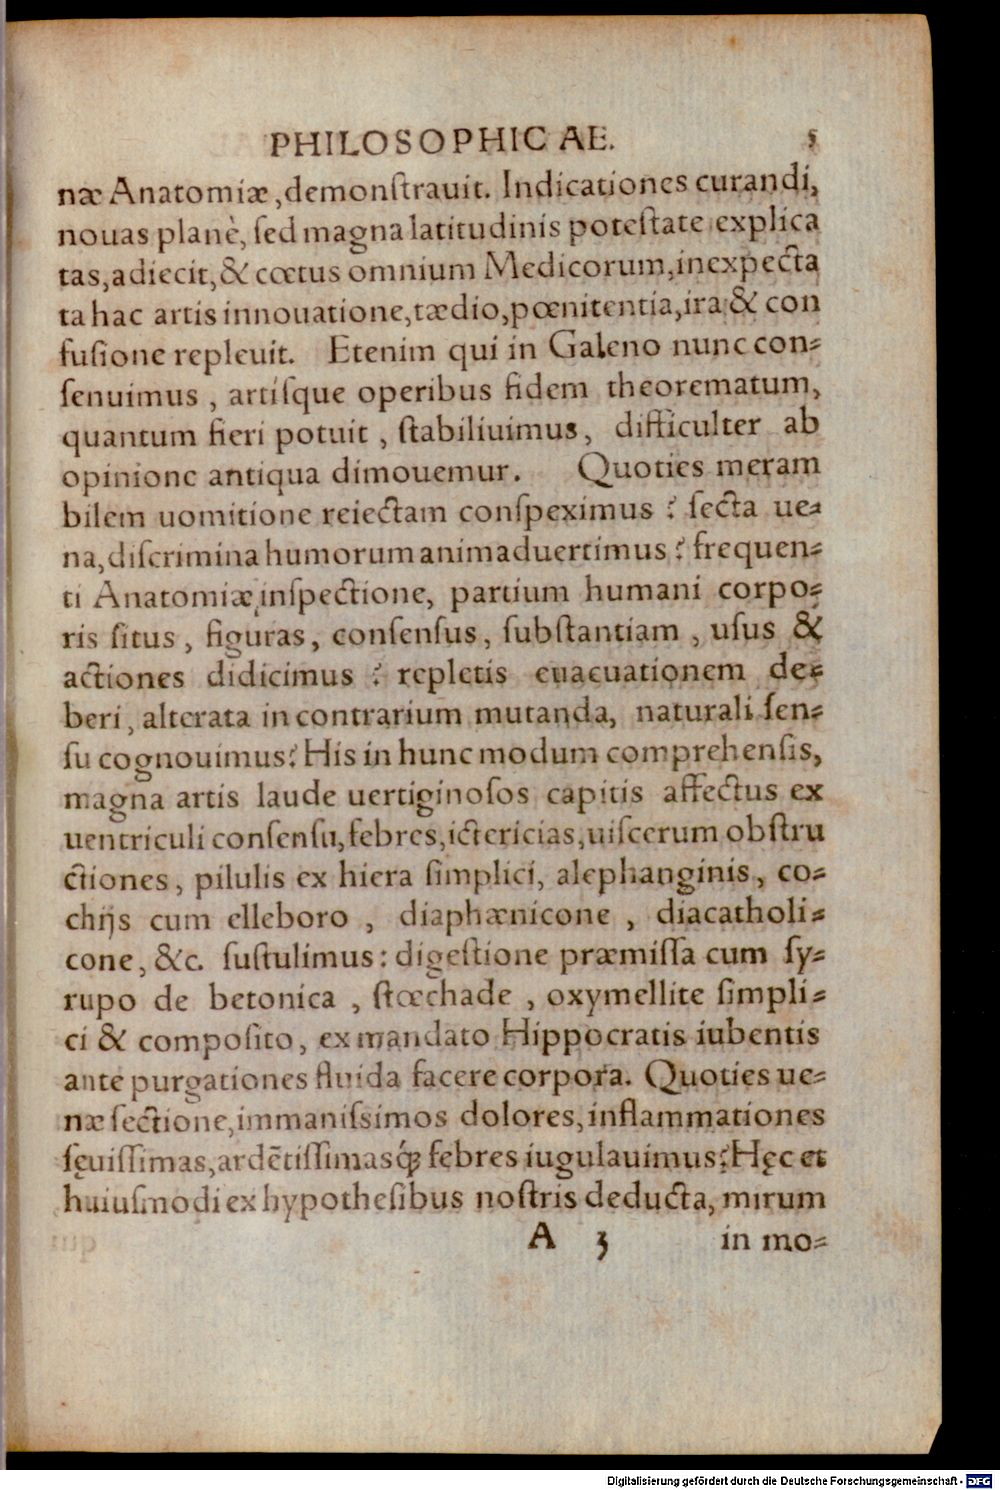 PHILOSOPHICAE. 5
næ Anatomiæ, demonſtrauit. Indicationes curandi,
nouas planè, ſed magna latitudinis poteſtate explica
tas, adiecit, & cœtus omnium Medicorum, inexpecta
ta hac artis innouatione, tædio, pœnitentia, ira & con
fuſione repleuit. Etenim qui in Galeno nunc con⸗
ſenuimus, artiſque operibus fidem theorematum,
quantum fieri potuit, ſtabiliuimus, difficulter ab
opinione antiqua dimouemur. Quoties meram
bilem uomitione reiectam conſpeximus? ſecta ue⸗
na, diſcrimina humorum animaduertimus? frequen⸗
ti Anatomiæ inſpectione, partium humani corpo⸗
ris ſitus, figuras, conſenſus, ſubſtantiam, uſus &
actiones didicimus? repletis euacuationem de⸗
beri, alterata in contrarium mutanda, naturali ſen⸗
ſu cognouimus? His in hunc modum comprehenſis,
magna artis laude uertiginoſos capitis affectus ex
uentriculi conſenſu, febres, ictericias, uiſcerum obſtru
ctiones, pilulis ex hiera ſimplici, alephanginis, co⸗
chijs cum elleboro, diaphænicone, diacatholi⸗
cone, &c. ſuſtulimus: digeſtione præmiſſa cum ſy⸗
rupo de betonica, ſtœchade, oxymellite ſimpli⸗
ci & compoſito, ex mandato Hippocratis iubentis
ante purgationes fluida facere corpora. Quoties ue⸗
næ ſectione, immaniſsimos dolores, inflammationes
ſęuiſſimas, ardētiſſimasq́; febres iugulauimus? Hęc et
huiuſmodi ex hypotheſibus noſtris deducta, mirum
A 3 in mo⸗
Digitalisierung gefördert durch die Deutsche Forschungsgemeinschaft - DFG